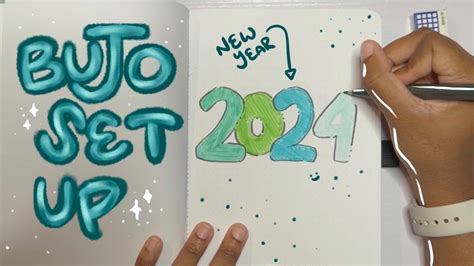 BUJO
SET
UP
NEW
YEAR
2024